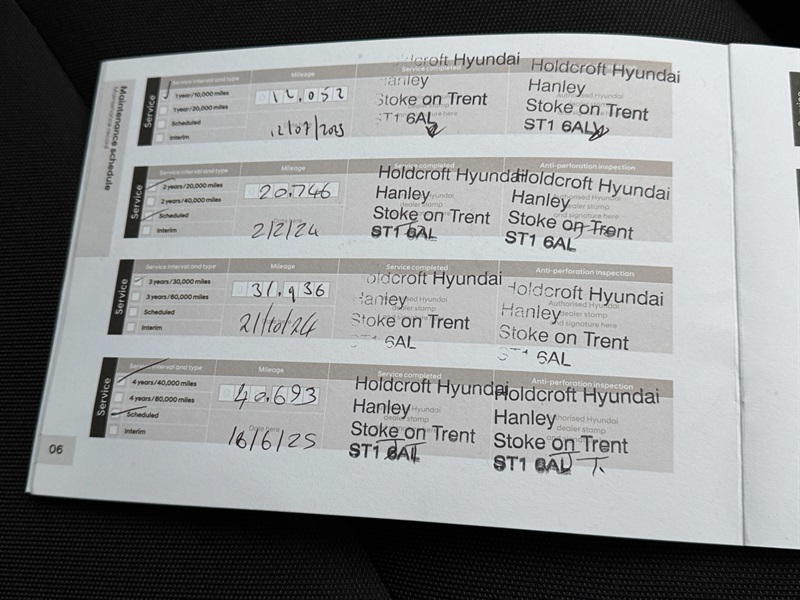 Maintenance schedule
Maintenance record
Service
Service interval and type
Mileage
Service completed
1 year/10,000 miles
1 year/20,000 miles
Scheduled
Interim
12,052
12/07/2023
Holdcroft Hyundai
Hanley
Stoke on Trent
ST1 6AL
Holdcroft Hyundai
Hanley
Stoke on Trent
ST1 6AL
Service
Service interval and type
Mileage
Service completed
Anti-perforation inspection
2 years/20,000 miles
2 years/40,000 miles
Scheduled
Interim
20,746
2/2/24
Holdcroft Hyundai
Hanley
Stoke on Trent
ST1 6AL
Holdcroft Hyundai
Hanley
Stoke on Trent
ST1 6AL
Service
Service interval and type
Mileage
Service completed
Anti-perforation inspection
3 years/30,000 miles
3 years/60,000 miles
Scheduled
Interim
31,936
21/10/24
Holdcroft Hyundai
Hanley
Stoke on Trent
6AL
Holdcroft Hyundai
Hanley
Stoke on Trent
6AL
Service
Service interval and type
Mileage
Service completed
Anti-perforation inspection
4 years/40,000 miles
4 years/80,000 miles
Scheduled
Interim
40,693
16/6/25
Holdcroft Hyundai
Hanley
Stoke on Trent
ST1 6AL
Holdcroft Hyundai
Hanley
Stoke on Trent
ST1 6AL
06